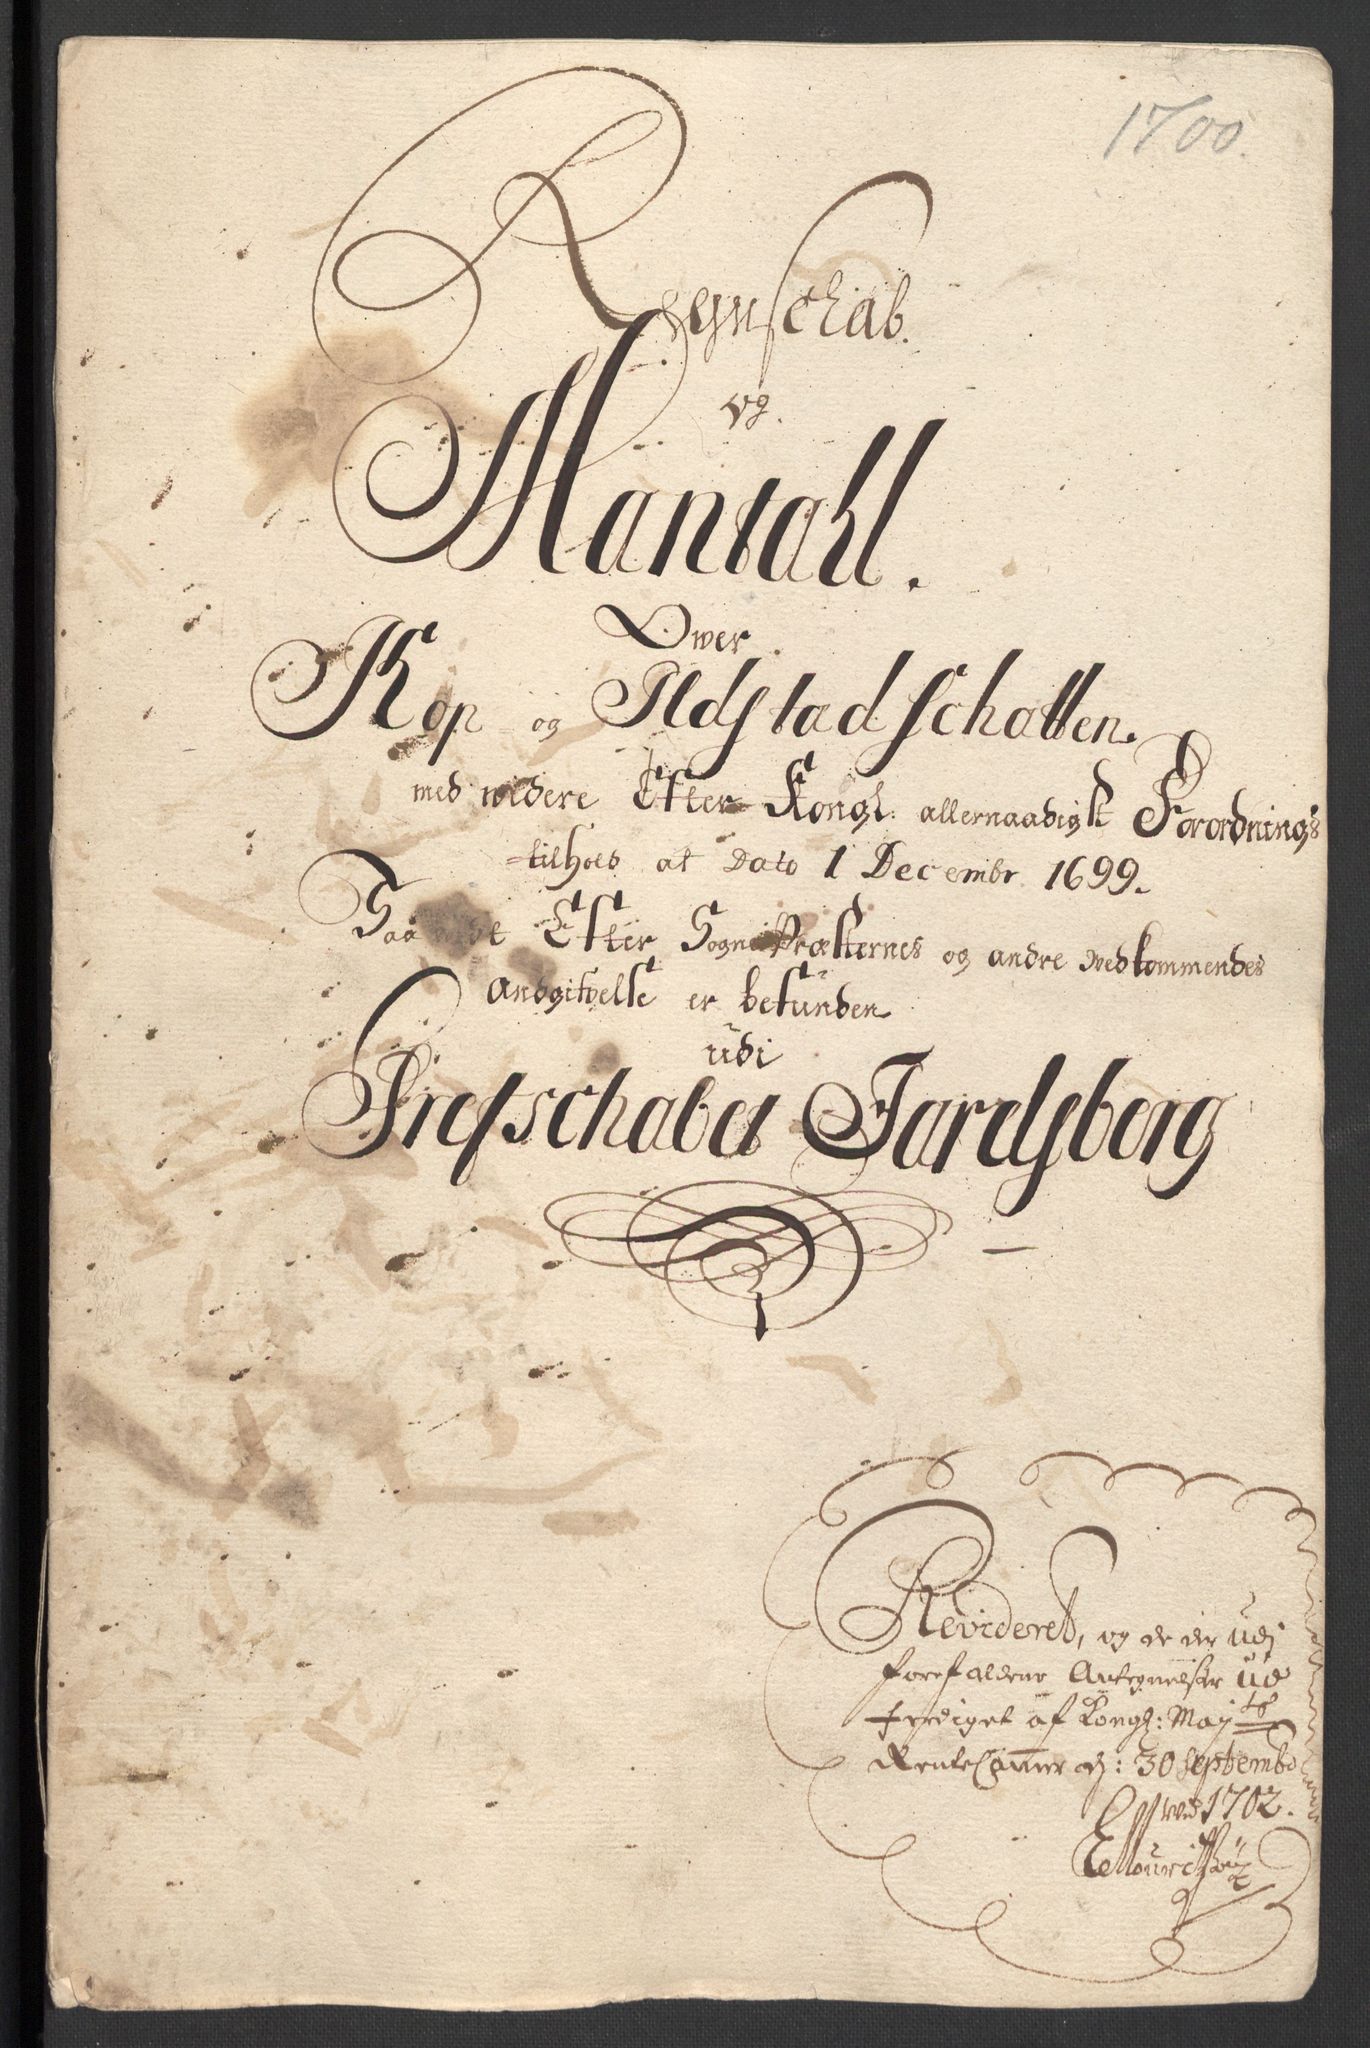 1700.
Regnschab.
og.
Mantall.
Ower
Kop og Ildstad schatten.
med widere Efter Kongl: allernaadigst Forordnings
tilhold at Dato 1 Decembr 1699.
Saa vidt Efter Sogne Præsternes og andre Vedkommendes
Andgifvelse er befunden
udi
Grefschabet Jarelsberg
Revideret, og de der udi
forefaldene Antegnelser ud
ferdiget af Kongl: May ts
RenteCammer d: 30 Septembr
1702.